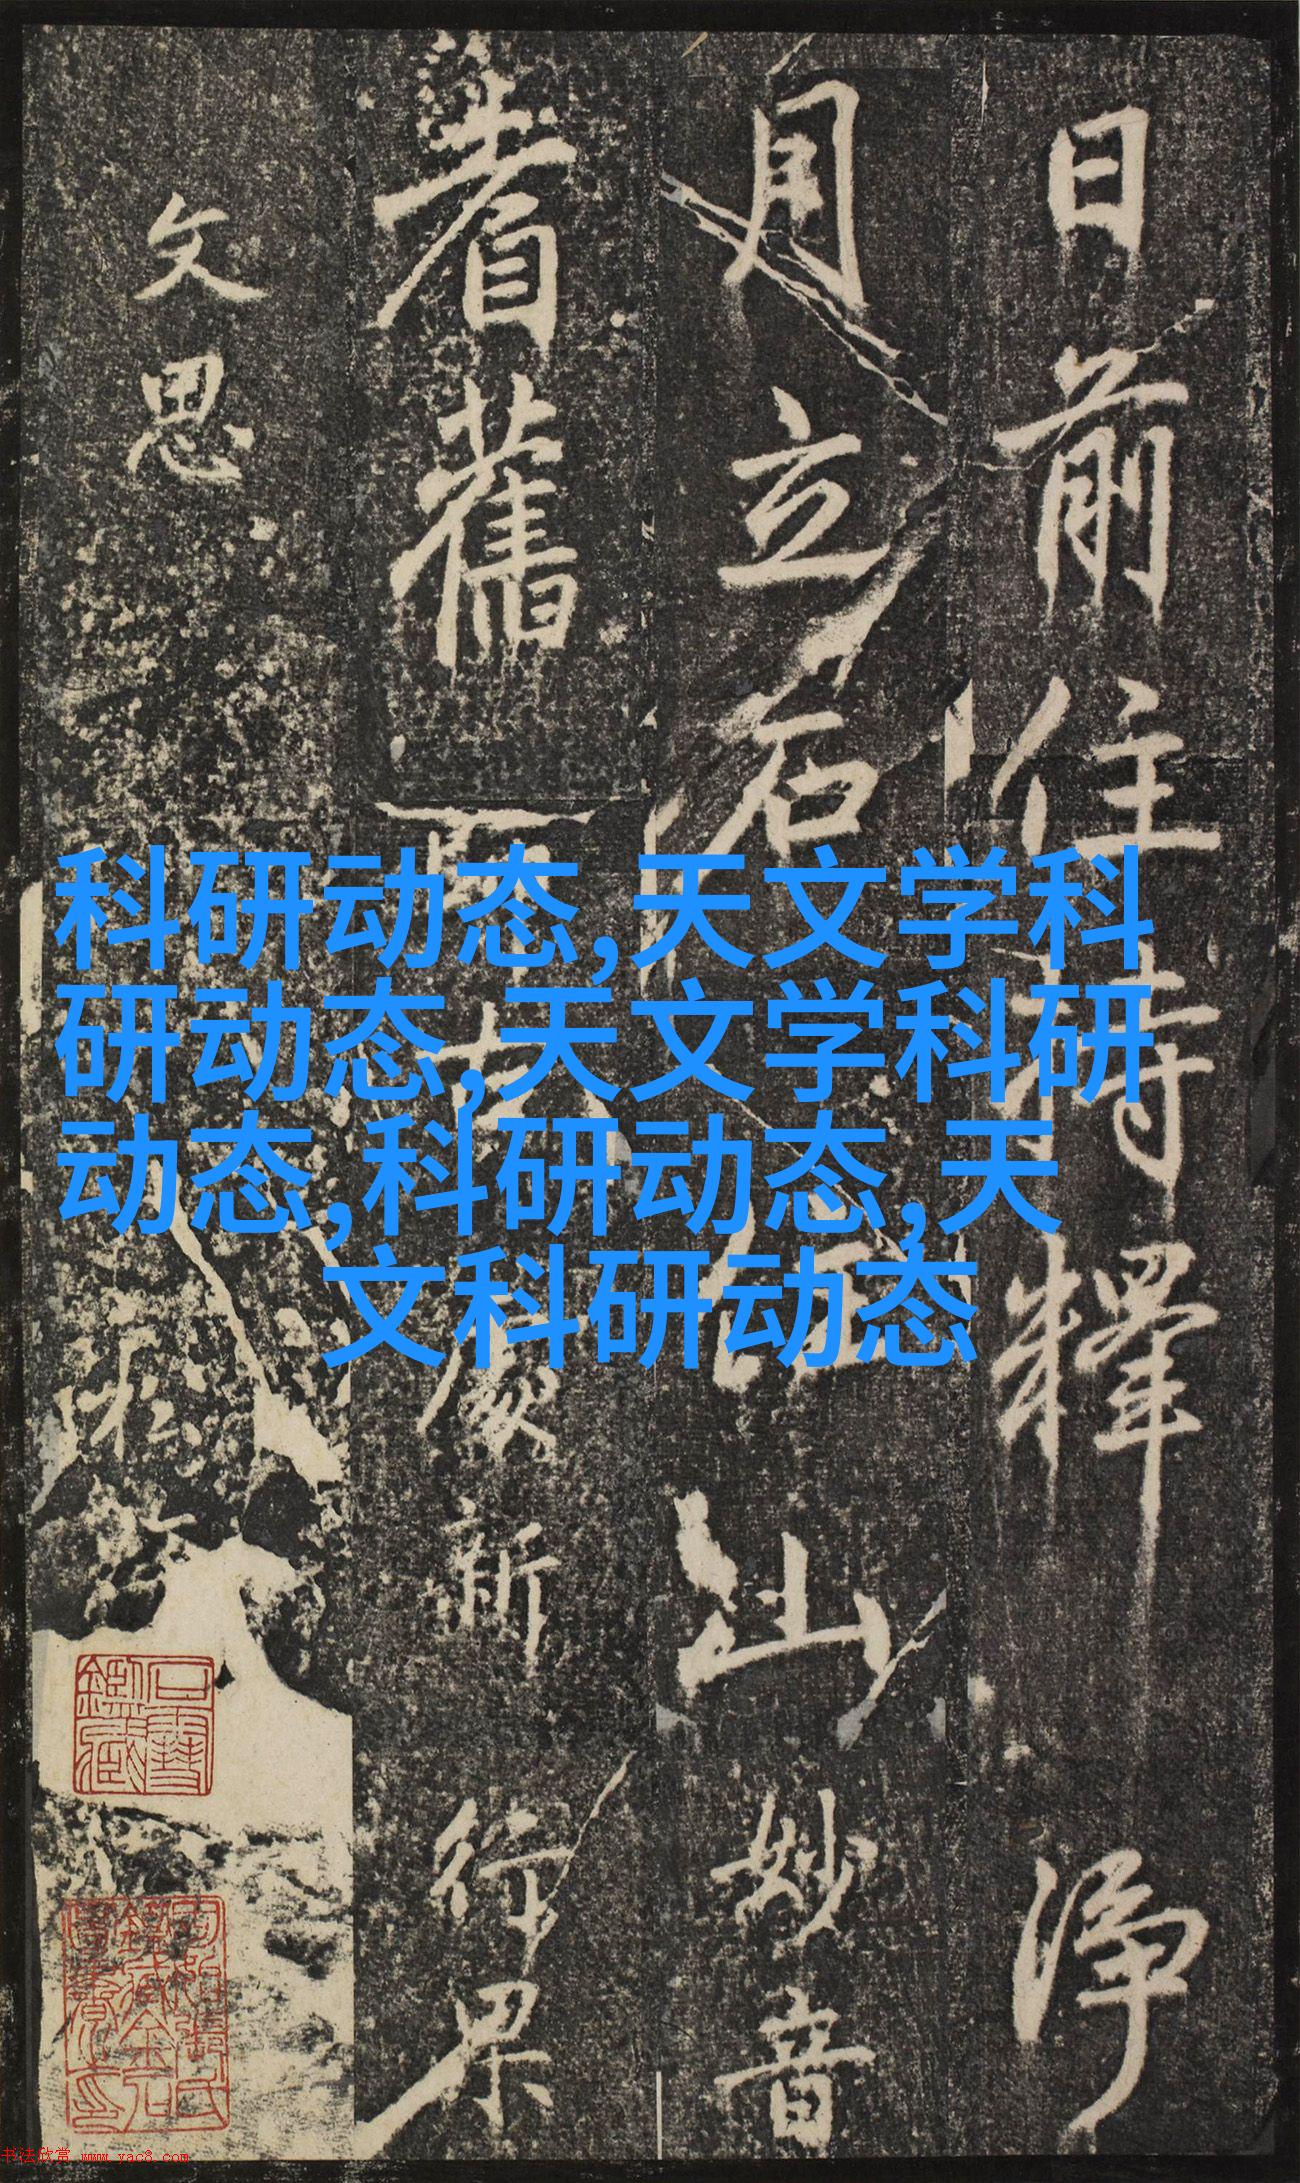 日前住持釋淨
月立石山妙音
耆舊新行果
文思
科研动态,天文学科
研动态,天文学科研
动态,科研动态,天
文科研动态
书法欣赏 www.yac8.com